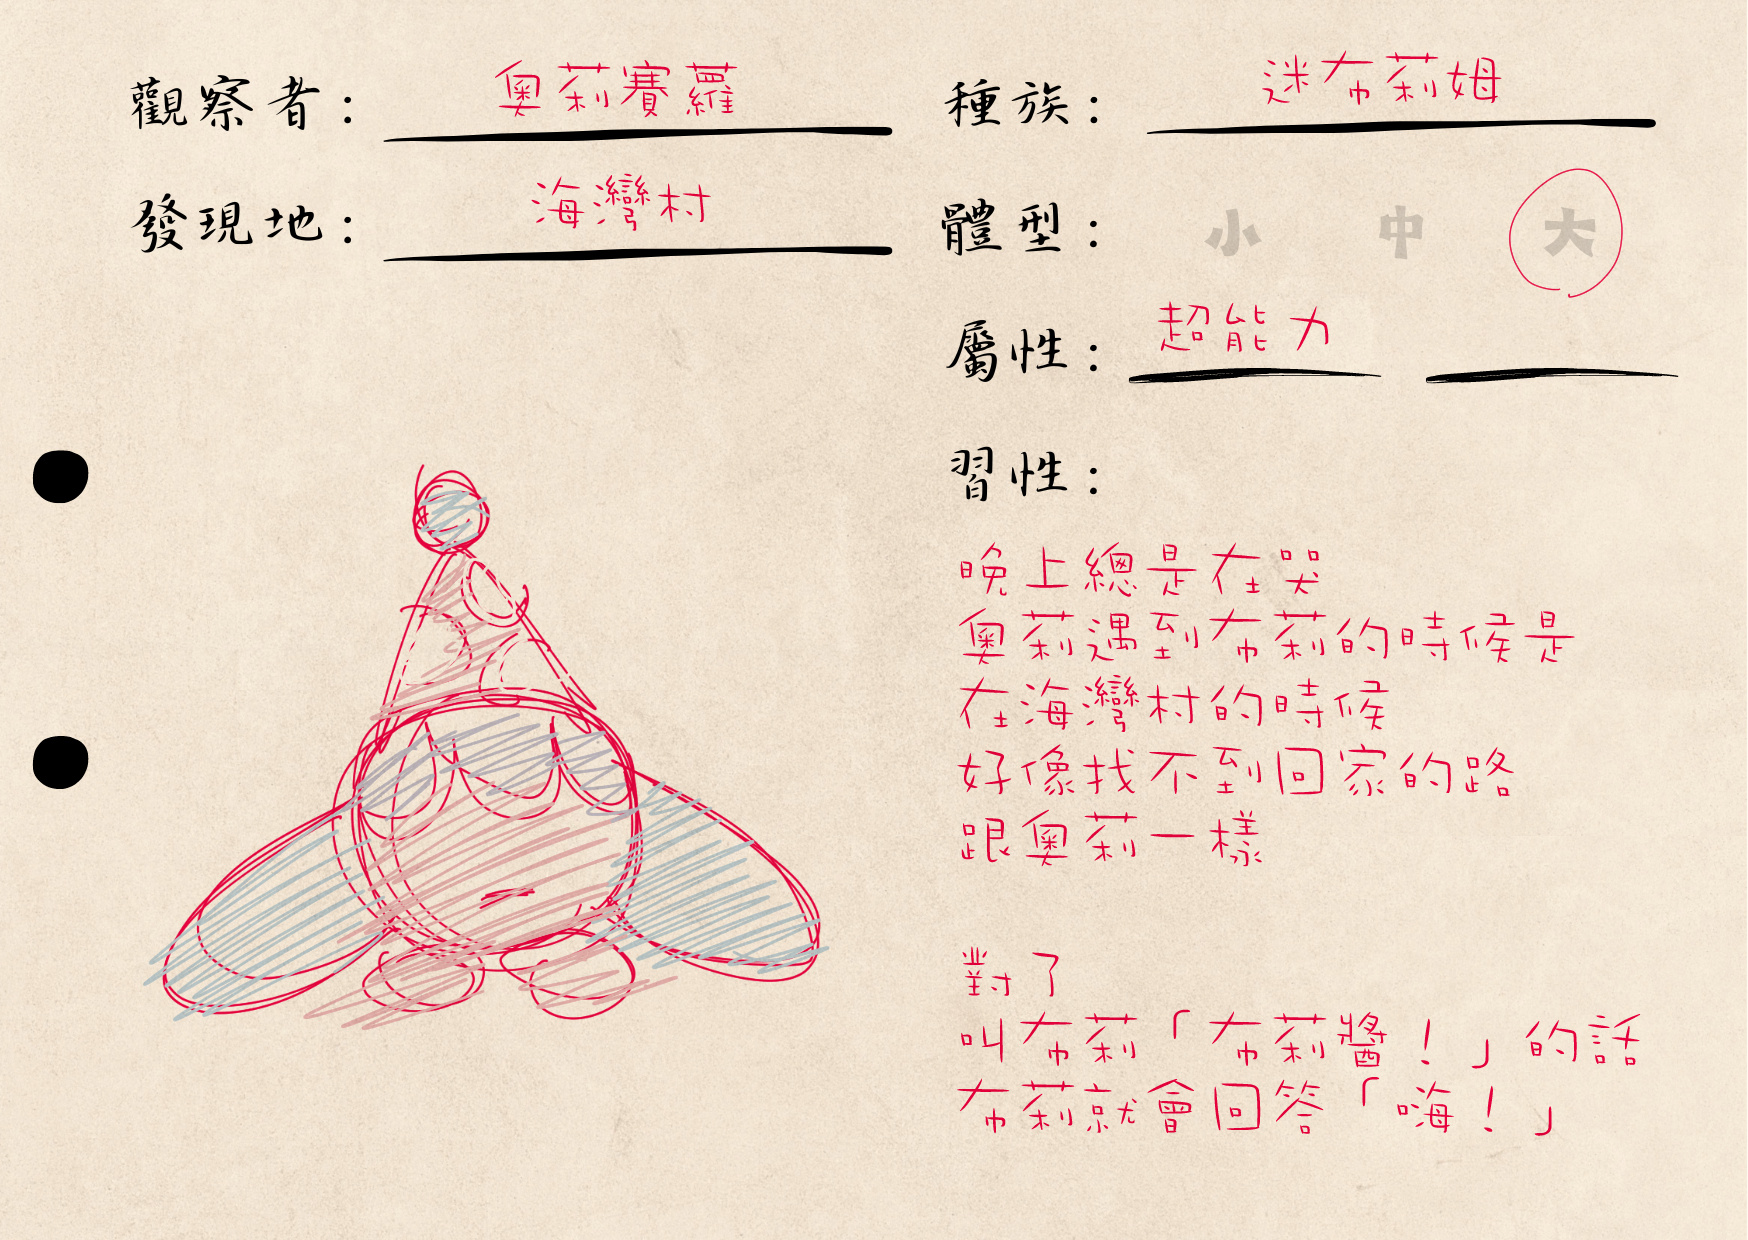 觀察者： 奧莉賽蘿
發現地： 海灣村
種族： 迷布莉姆
體型： 小 中 大
屬性： 超能力
習性：
晚上總是在哭
奧莉遇到布莉的時候是
在海灣村的時候
好像找不到回家的路
跟奧莉一樣
對了
叫布莉「布莉醬！」的話
布莉就會回答「嗨！」